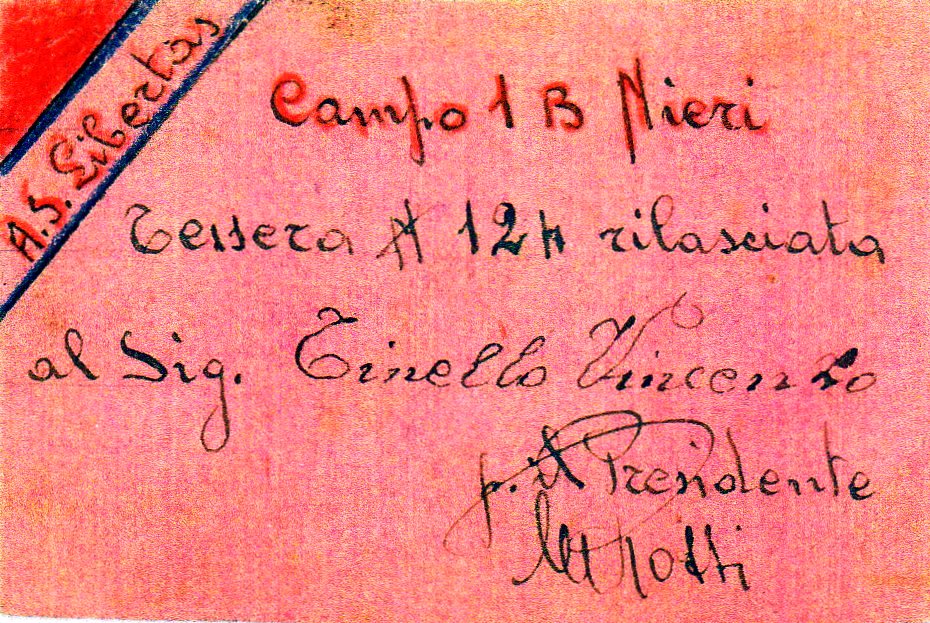 A.S. Libertas
Campo 1 B Nieri
Tessera N 124 rilasciata
al Sig. Tinello Vincenzo
p. il Presidente